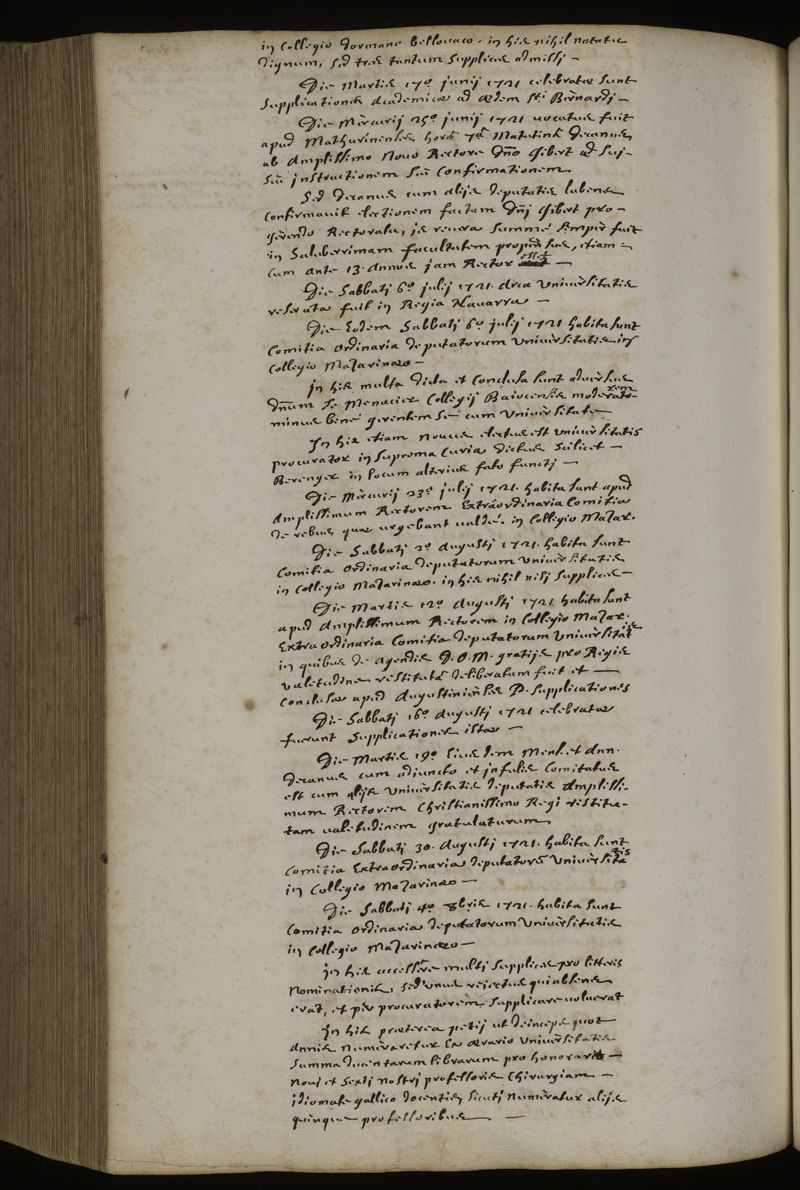 in Collegio dormano bellouaco. in his nihil notatu
dignum, sed tres tantum supplices admissi –
Die Martis 17ª junij 1721 celebratæ sunt
supplicationes Academicæ ad ædem Sti Bernardj –
Die Mercurij 25ª junij 1721 vocatus fuit
apud Mathurinenses horâ 7â Matutinâ Decanus
ab Amplissimo Novo Rectore Dño Gibert ad sui
seu jnstructionem seu Confirmationem
Sed Decanus cum alijs deputatis lubens
confirmavit electionem factam Dñj Gibert pro
gerendo Rectoratu, is revera summè semper fuit
in saluberrimam facultatem propensus, etiam
cum ante 13. Annos jam Rector esset –
Die Sabbatj 6ª julij 1721. Arca Universitatis
reserata fuit in Regia Navarra –
Die Eodem Sabbatj 6ª julij 1721 habita sunt
Comitia ordinaria deputatorum Universitatis in
Collegio Mazarinæo –
jn his multa dicta et Conclusa sunt adversus
dñum Le Menacier Collegij Baiocensis moderatorem
minus bene gerentem se cum Universitate
In his etiam novus electus est universitatis
procurator in Suprema Curia dictus scilicet –
Berenger in locum alterius fato functj –
Die Mercurij 23ª julij 1721. habita sunt apud
Amplissimum Rectorem Extraordinaria Comitia
de rebus quæ urgebant valdè. in Collegio Mazar.
Die Sabbatj 2ª Augustj 1721. habita sunt
Comitia ordinaria deputatorum Universitatis
in Collegio Mazarinæo. in his nihil nisj supplices –
Die Martis 12ª Augustj 1721 habita sunt
apud Amplissimum Rectorem in Collegio Mazar.
Extraordinaria Comitia deputatorum Universitatis
in quibus de agendis D.O.M. gratijs pro Regis
valetudine restitutâ deliberatum fuit et –
Conclusæ apud Augustinienses P. supplicationes
Die Sabbatj 16ª Augustj 1721 celebratæ
fuerunt supplicationes istæ –
Die Martis 19ª Eiusdem Mens. et Ann.
Decanus cum adjuncto et jnfulis Comitatus
est cum alijs Universitatis deputatis Amplissi-
mum Rectorem Christianissimo Regi restitu-
tam valetudinem gratulaturum
Die Sabbatj 30. Augustj 1721. habita sunt
Comitia Extraordinaria deputatorũ Universitatis
in Collegio Mazarinæo –
Die Sabbatj 4ª 8bris 1721. habita sunt
Comitia ordinaria deputatorum Universitatis
in Collegio Mazarinæo –
jn his accessere multj supplices pro litteris
Nominationis, sed unus rejectus qui absens
erat, et per procuratorem supplicare voluerat
In his præterea petij ut deinceps quot
Annis Numeraretur Ex ærario Universitatis
summa ducentarum librarum pro honorario –
Novj et Sextj nostrj professoris Chirurgiam –
jdiomate gallico docentis, sicutj Numeratur alijs
quinque professoribus –